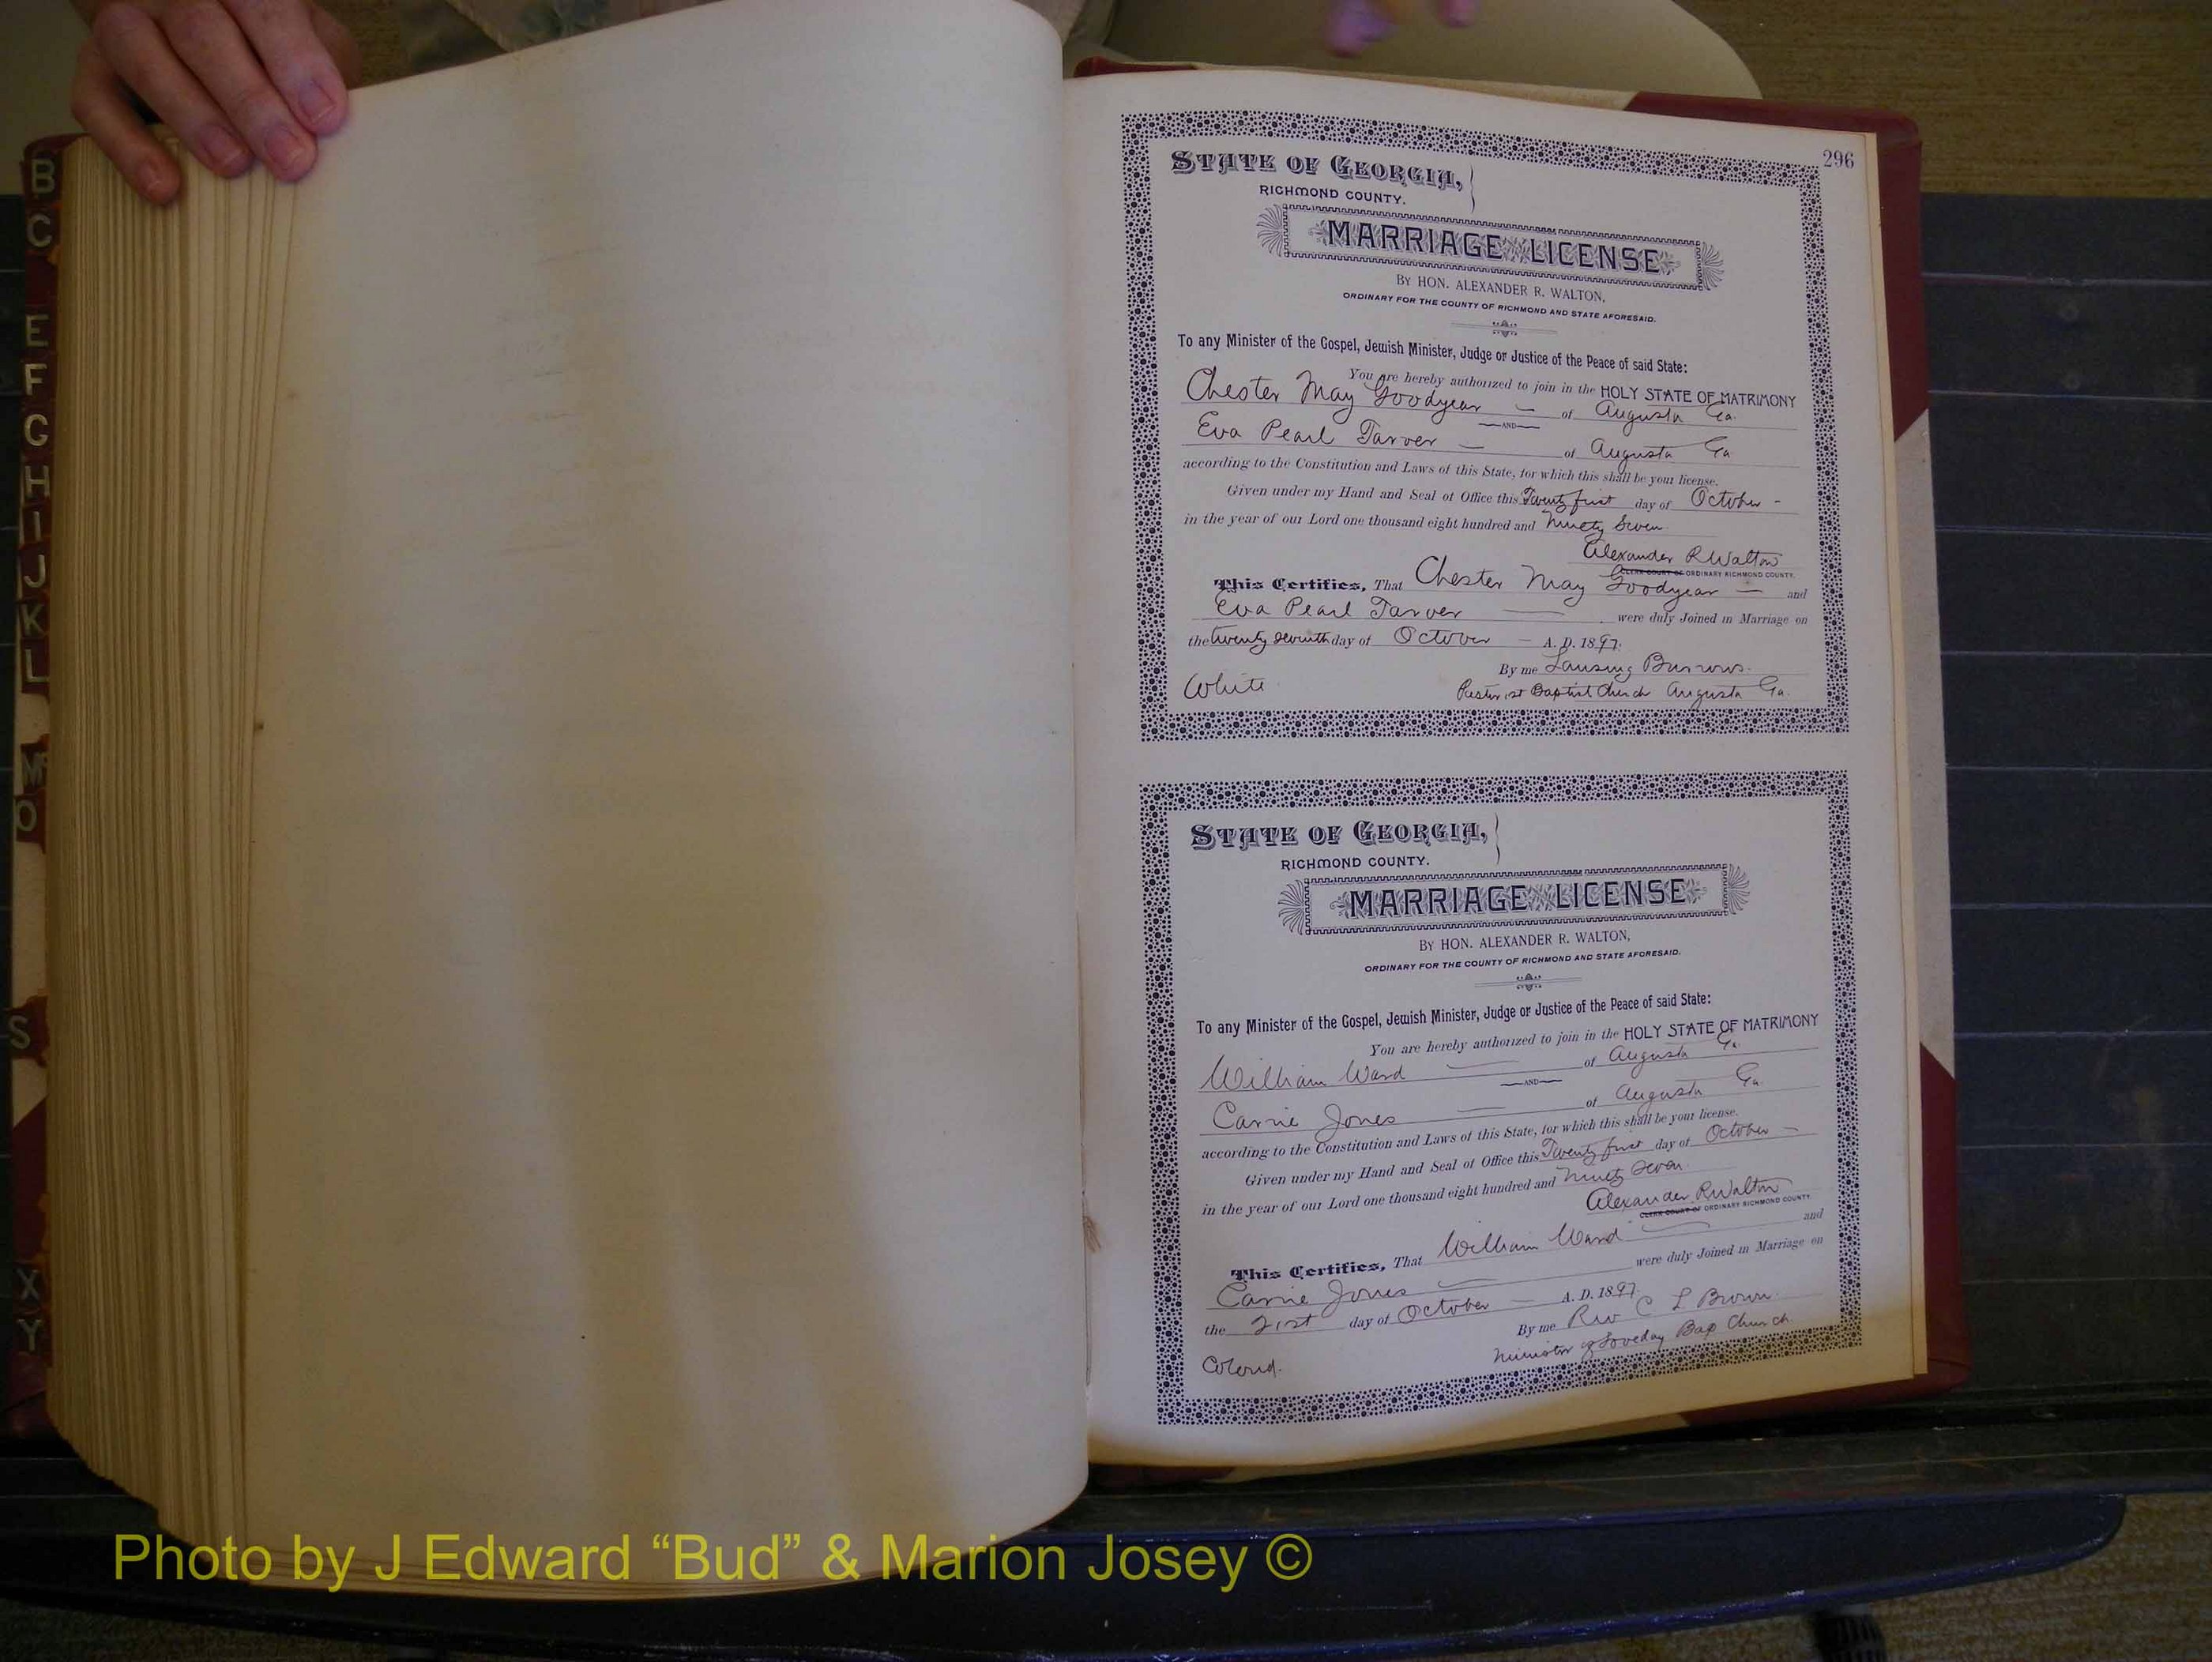 B
C
E
F
G
H
I
J
K
L
M
O
S
X
Y
296
STATE OF GEORGIA,
RICHMOND COUNTY.
MARRIAGE LICENSE
BY HON. ALEXANDER R. WALTON,
ORDINARY FOR THE COUNTY OF RICHMOND AND STATE AFORESAID.
To any Minister of the Gospel, Jewish Minister, Judge or Justice of the Peace of said State:
You are hereby authorized to join in the HOLY STATE OF MATRIMONY
Chester May Goodyear — of Augusta Ga.
—AND—
Eva Pearl Tarver — of Augusta Ga
according to the Constitution and Laws of this State, for which this shall be your license.
Given under my Hand and Seal of Office this Twenty first day of October -
in the year of our Lord one thousand eight hundred and Ninety Seven
Alexander R Walton
CLERK COURT OF ORDINARY RICHMOND COUNTY.
This Certifies, That Chester May Goodyear — and
Eva Pearl Tarver — were duly Joined in Marriage on
the twenty seventh day of October — A. D. 1897.
By me Lansing Burrows.
White
Pastor 1st Baptist Church Augusta Ga.
STATE OF GEORGIA,
RICHMOND COUNTY.
MARRIAGE LICENSE
BY HON. ALEXANDER R. WALTON,
ORDINARY FOR THE COUNTY OF RICHMOND AND STATE AFORESAID.
To any Minister of the Gospel, Jewish Minister, Judge or Justice of the Peace of said State:
You are hereby authorized to join in the HOLY STATE OF MATRIMONY
William Ward — of Augusta Ga.
—AND—
Carrie Jones — of Augusta Ga.
according to the Constitution and Laws of this State, for which this shall be your license.
Given under my Hand and Seal of Office this Twenty first day of October —
in the year of our Lord one thousand eight hundred and Ninety Seven.
Alexander R Walton
CLERK COURT OF ORDINARY RICHMOND COUNTY.
This Certifies, That William Ward — and
Carrie Jones — were duly Joined in Marriage on
the 21st day of October — A. D. 1897
By me Rev C L Brown.
Colored.
Minister of Loveday Bap Church.
Photo by J Edward “Bud” & Marion Josey ©